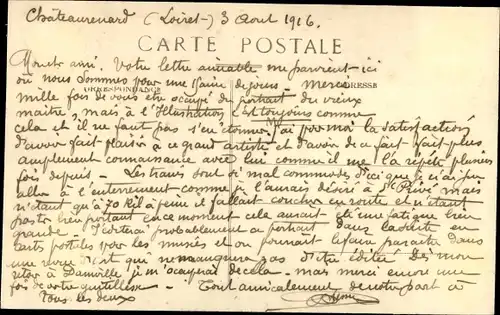 Chateaurenard (Loiret) 3 Aout 1916.
CARTE POSTALE
Mon cher ami. Votre lettre aimable me parvient ici
CORRESPONDANCE
ADRESSE
où nous sommes pour une 15aine de jours. Merci
mille fois de vous être occupé du portrait du vieux
maitre, mais à l'Illustration c'est toujours comme
cela et il ne faut pas s'en étonner. J'ai pour moi la satisfaction
d'avoir fait plaisir à ce grand artiste et d'avoir de ce fait fait plus
amplement connaissance avec lui comme il me l'a répété plusieurs
fois depuis - Les trains sont si mal commodes d'ici que je n'ai pu
aller à l'enterrement comme je l'aurais désiré à St Privé mais
n'étant qu'à 70 kil à peine il fallait coucher en route et n'étant
pas très bien portant en ce moment cela aurait été une fatigue bien
grande. Il restera probablement ce portrait dans
carte postale pour les musées et on pourrait le faire paraitre dans
une revue d'art qui ne manquera pas d'être éditée. De mon
retour à Damville je m'occuperai de cela - mais merci encore une
fois de votre gentillesse - Tout amicalement de notre part à
tous les deux